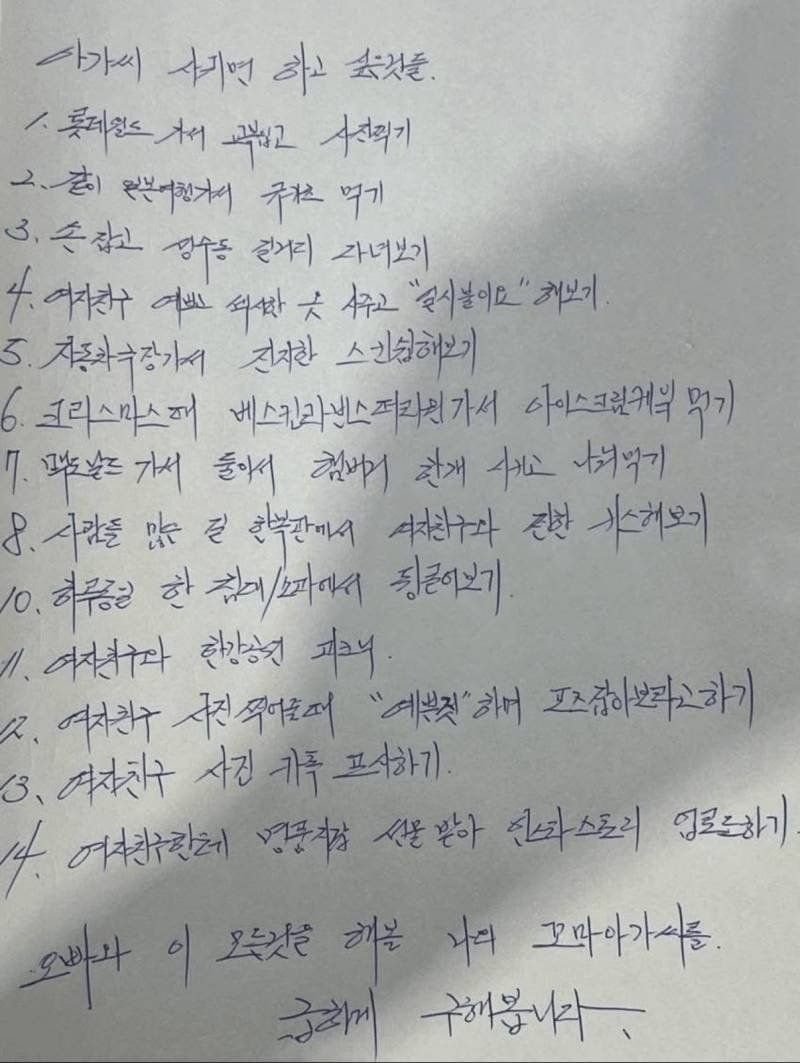 아가씨 사귀면 하고 싶은것들.
1. 롯데월드 가서 교복입고 사진찍기
2. 같이 일본여행가서 규카츠 먹기
3. 손 잡고 성수동 길거리 다녀보기
4. 여자친구 예쁘 섹시한 옷 사주고 "일시불이요" 해보기.
5. 자동차극장가서 진지한 스킨쉽해보기
6. 크리스마스때 베스킨라빈스 가서 아이스크림케익 먹기
7. 맥도날드 가서 둘이서 햄버거 한개 시키고 나눠먹기
8. 사람들 많은 길 한복판에서 여자친구와 진한 키스해보기
10. 하루종일 한 침대/소파에서 뒹굴어보기.
11. 여자친구와 한강공원 피크닉.
12. 여자친구 사진 찍어줄때 "예쁜짓"하며 포즈잡아보라고하기
13. 여자친구 사진 카톡 프사하기.
14. 여자친구한테 명품지갑 선물 받아 인스타스토리 업로드하기.
오빠와 이 모든것을 해볼 나의 꼬마아가씨를.
급하게 구해봅니다.